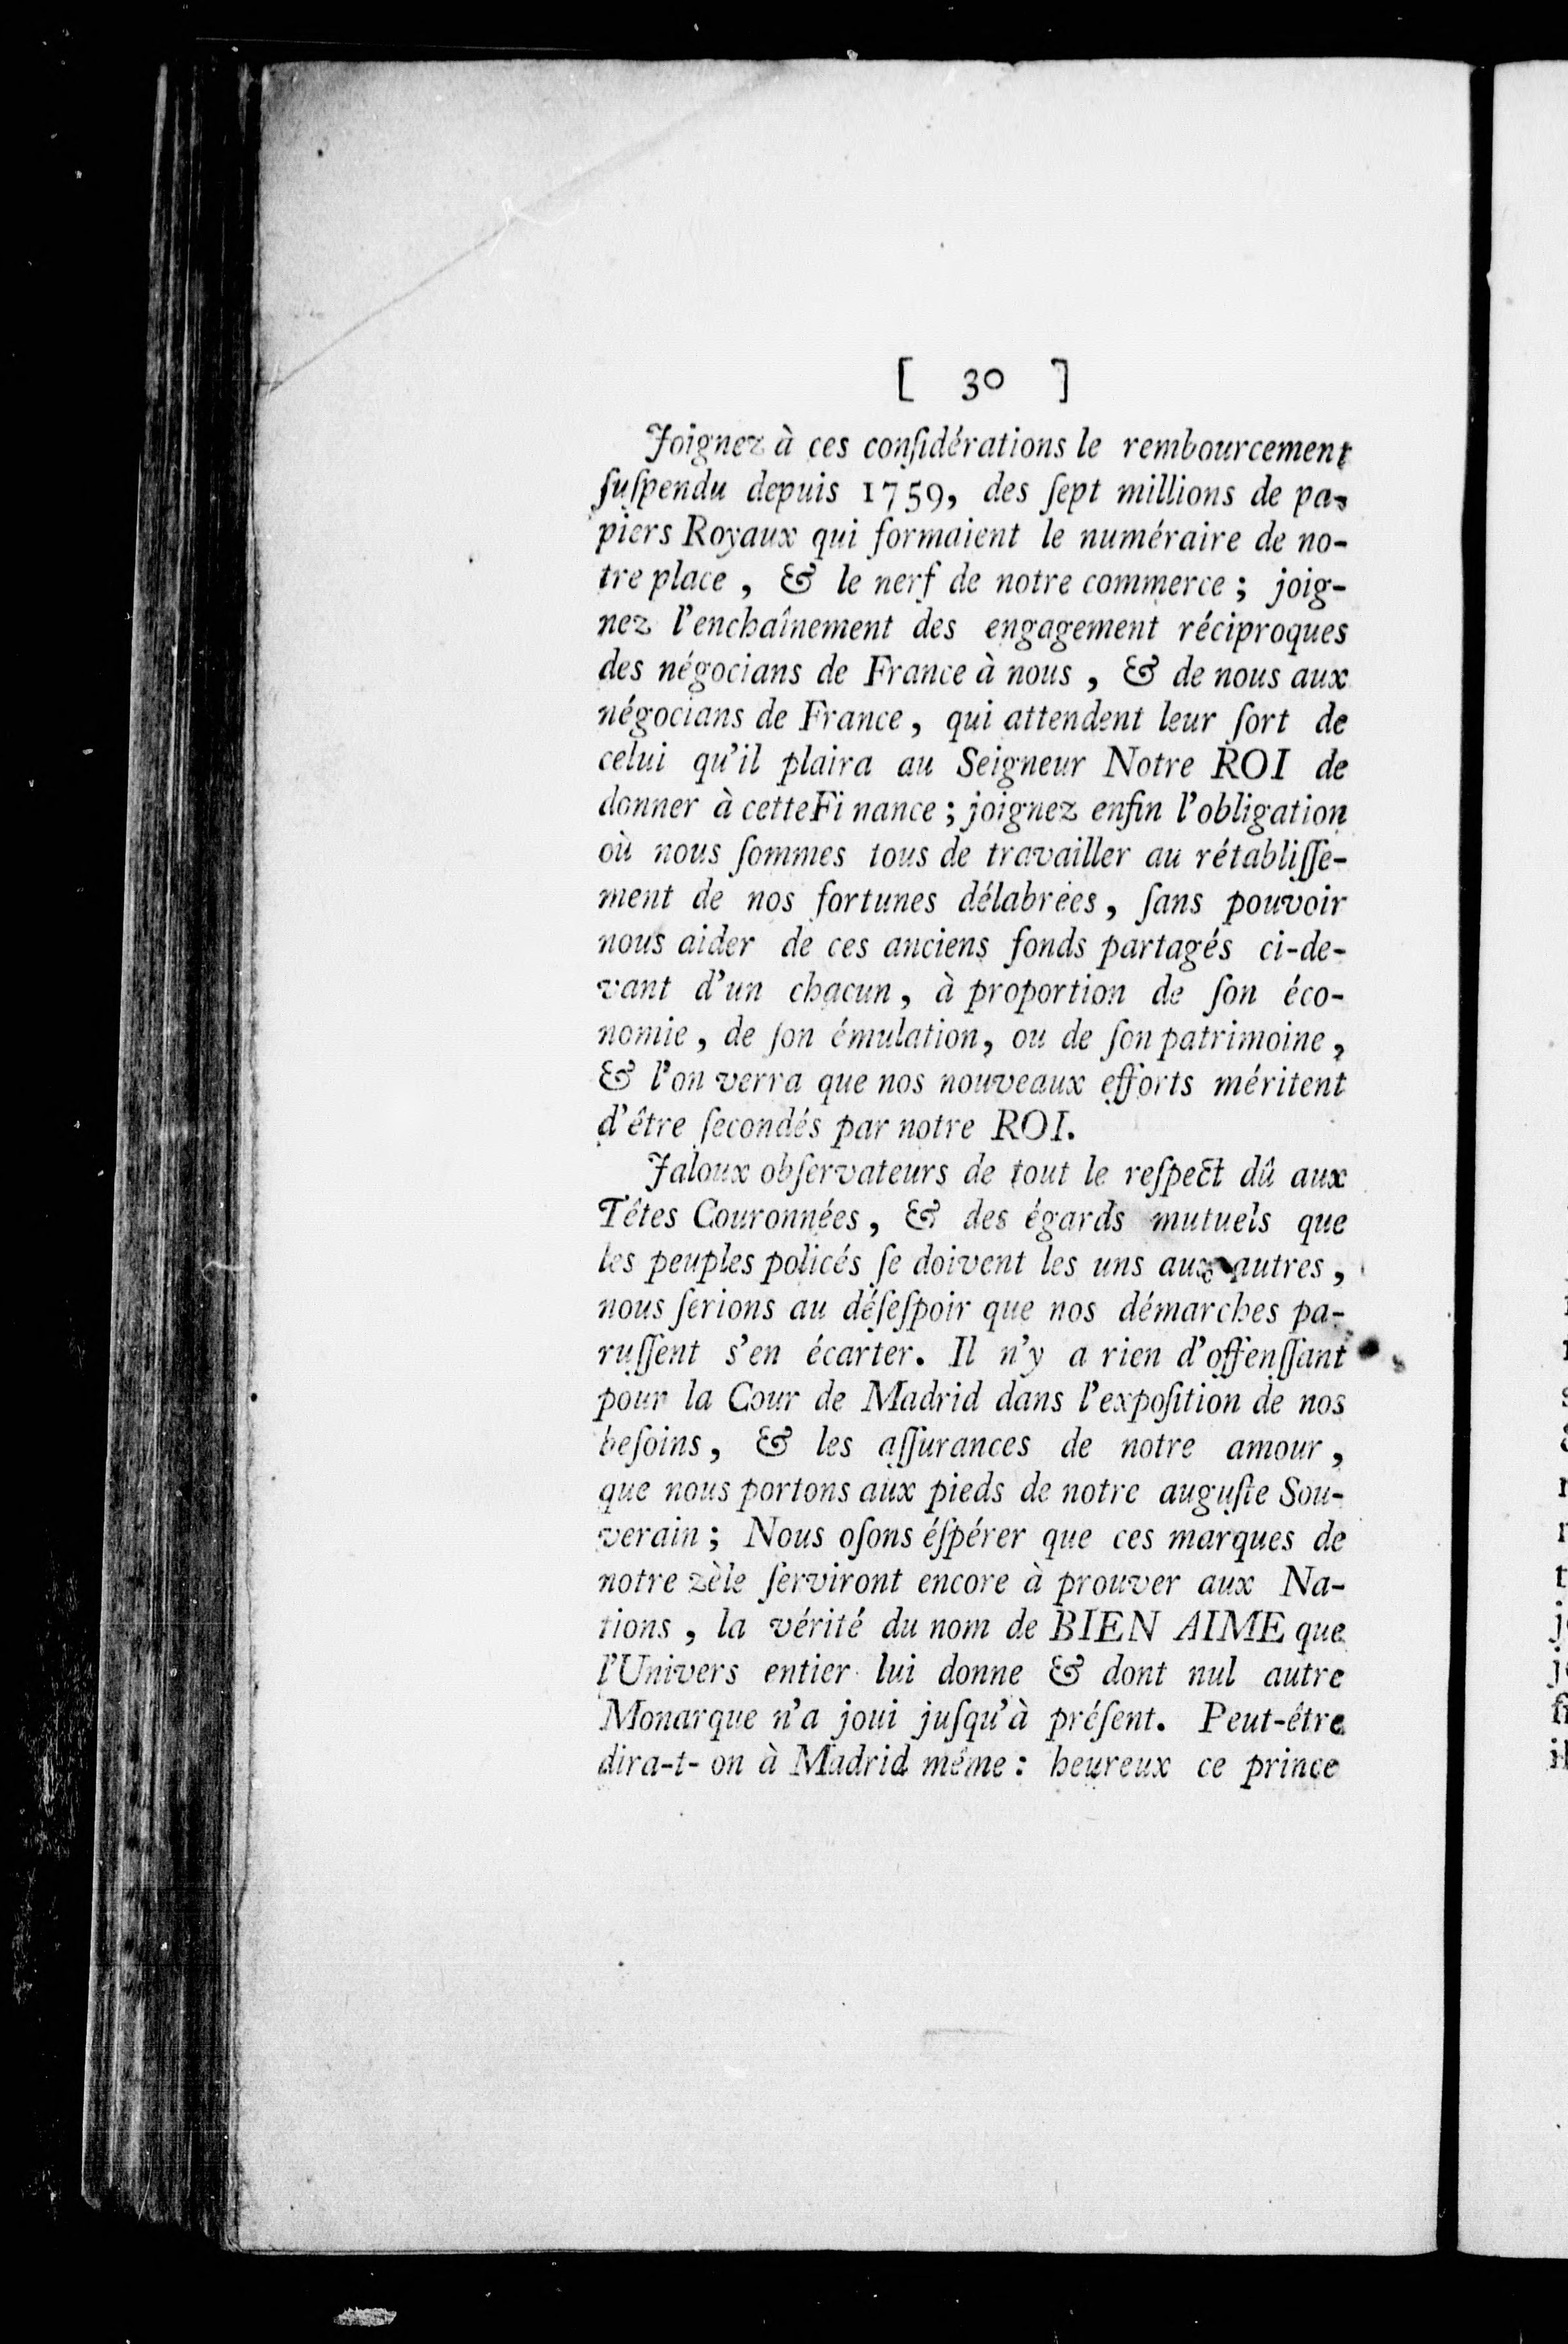 [ 30 ]
Joignez à ces conſidérations le rembourcement
ſuſpendu depuis 1759, des ſept millions de pa-
piers Royaux qui formaient le numéraire de no-
tre place, & le nerf de notre commerce; joig-
nez l'enchaînement des engagement réciproques
des négocians de France à nous, & de nous aux
négocians de France, qui attendent leur ſort de
celui qu'il plaira au Seigneur Notre ROI de
donner à cetteFi nance; joignez enfin l'obligation
où nous ſommes tous de travailler au rétabliſſe-
ment de nos fortunes délabrées, ſans pouvoir
nous aider de ces anciens fonds partagés ci-de-
vant d'un chacun, à proportion de ſon éco-
nomie, de ſon émulation, ou de ſon patrimoine,
& l'on verra que nos nouveaux efforts méritent
d'être ſecondés par notre ROI.
Jaloux obſervateurs de tout le reſpect dû aux
Têtes Couronnées, & des égards mutuels que
les peuples policés ſe doivent les uns aux autres,
nous ſerions au déſeſpoir que nos démarches pa-
ruſſent s'en écarter. Il n'y a rien d'offenſſant
pour la Cour de Madrid dans l'expoſition de nos
beſoins, & les aſſurances de notre amour,
que nous portons aux pieds de notre auguſte Sou-
verain; Nous oſons éſpérer que ces marques de
notre zèle ſerviront encore à prouver aux Na-
tions, la vérité du nom de BIEN AIME que
l'Univers entier lui donne & dont nul autre
Monarque n'a joui juſqu'à préſent. Peut-être
dira-t- on à Madrid même: heureux ce prince